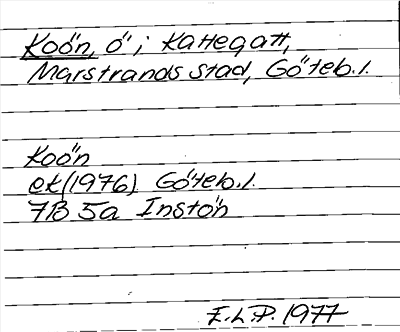 Koön, ö i Kattegatt,
Marstrands stad, Göteb.l.
Koön
ek(1976) Göteb.l.
7B 5a Instön
E.L.P. 1977